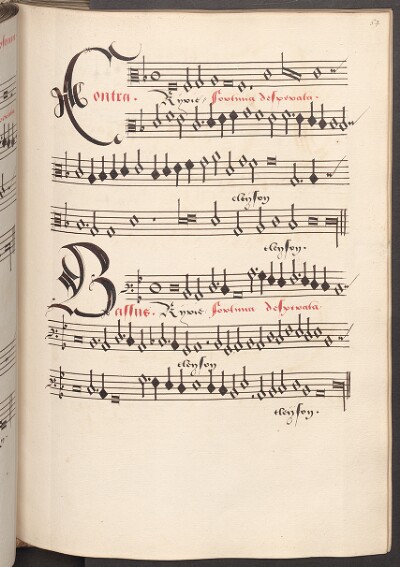 Contra. Kyrie, fortuna desperata.
eleyson
eleyson.
Bassus. Kyrie fortuna desperata
eleyson
eleyson.